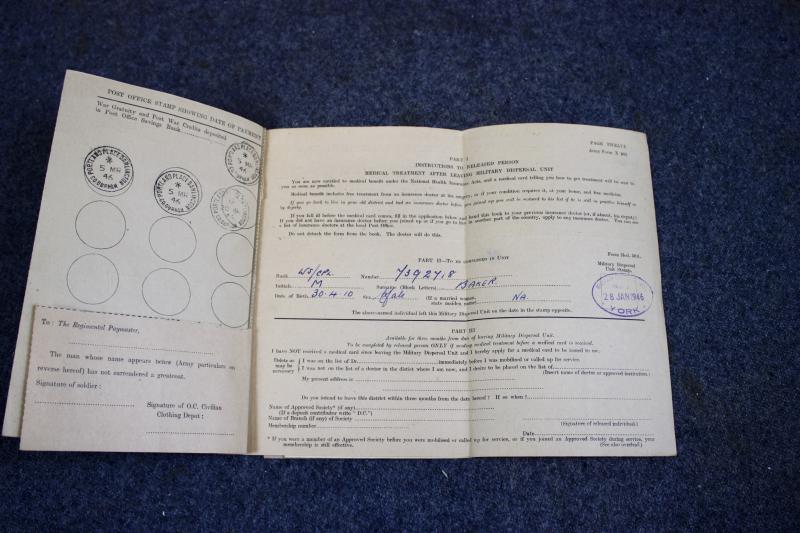 POST OFFICE STAMP SHOWING DATE OF PAYMENT
War Gratuity and Post War Credits deposited
in Post Office Savings Bank.
PORTLAND PLACE DARLINGTON
5 MR
46
CO. DURHAM
PORTLAND PLACE DARLINGTON
5 MR
46
CO. DURHAM
To: The Regimental Paymaster,
The man whose name appears hereon (Army particulars on
reverse hereof) has not surrendered a greatcoat.
Signature of soldier:
Signature of O.C. Civilian
Clothing Depot:
PAGE TWELVE
Army Form X
PART I
INSTRUCTIONS TO RELEASED PERSON
MEDICAL TREATMENT AFTER LEAVING MILITARY DISPERSAL UNIT
You are now entitled to medical benefit under the National Health Insurance Acts, and a medical card telling you how to get treatment will be sent to
you as soon as possible.
Medical benefit includes free treatment from an insurance doctor at his surgery, or, if your condition requires it, at your home, and free medicine.
If you go back to live in your old district and had an insurance doctor before you joined up you will be restored to his list if he is still in practice himself or
by deputy.
If you fall ill before the medical card comes, fill in the application below and hand this book to your previous insurance doctor (or, if absent, his deputy).
If you did not have an insurance doctor before you joined up or if you go to live in another part of the country, apply to any insurance doctor. You can see
a list of insurance doctors at the local Post Office.
Do not detach the form from the book. The doctor will do this.
Form Med. 50A.
PART II—To be completed in Unit
Military Dispersal
Unit Stamp.
Rank WS/CPL Number 7392718
Initials M Surname (Block Letters) BAKER
Date of Birth 30.4.10 Sex Male (If a married woman,
state maiden name) NA.
28 JAN 1946
YORK
The above-named individual left this Military Dispersal Unit on the date in the stamp opposite.
PART III
Available for three months from date of leaving Military Dispersal Unit.
To be completed by released person ONLY if needing medical treatment before a medical card is received.
I have NOT received a medical card since leaving the Military Dispersal Unit and I hereby apply for a medical card to be issued to me.
Delete as
may be
necessary
I was on the list of Dr. immediately before I was mobilised or called up for service.
I was not on the list of a doctor in the district where I am now, and I desire to be placed on the list of
(Insert name of doctor or approved institution.)
My present address is
Do you intend to leave this district within three months from the date hereof? If so when?
Name of Approved Society* (if any)
(If a deposit contributor write "D.C.")
Name of Branch (if any) of Society
Membership number
(Signature of released individual.)
Date
* If you were a member of an Approved Society before you were mobilised or called up for service, or if you joined an Approved Society during service, your
membership is still effective.
(See also overleaf.)